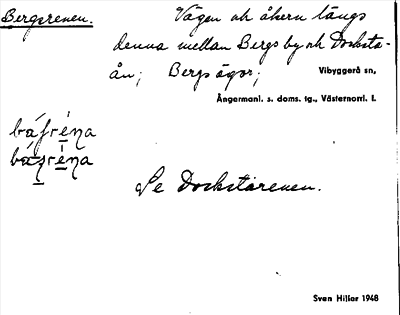 Bergsrenen. Vägen och åkern längs
denna mellan Bergs by och Docksta-
ån; Bergs ägor; Vibyggerå sn,
Ångermanl. s. doms. tg., Västernorrl. l.
Se Dockstarenen.
Sven Hillar 1948